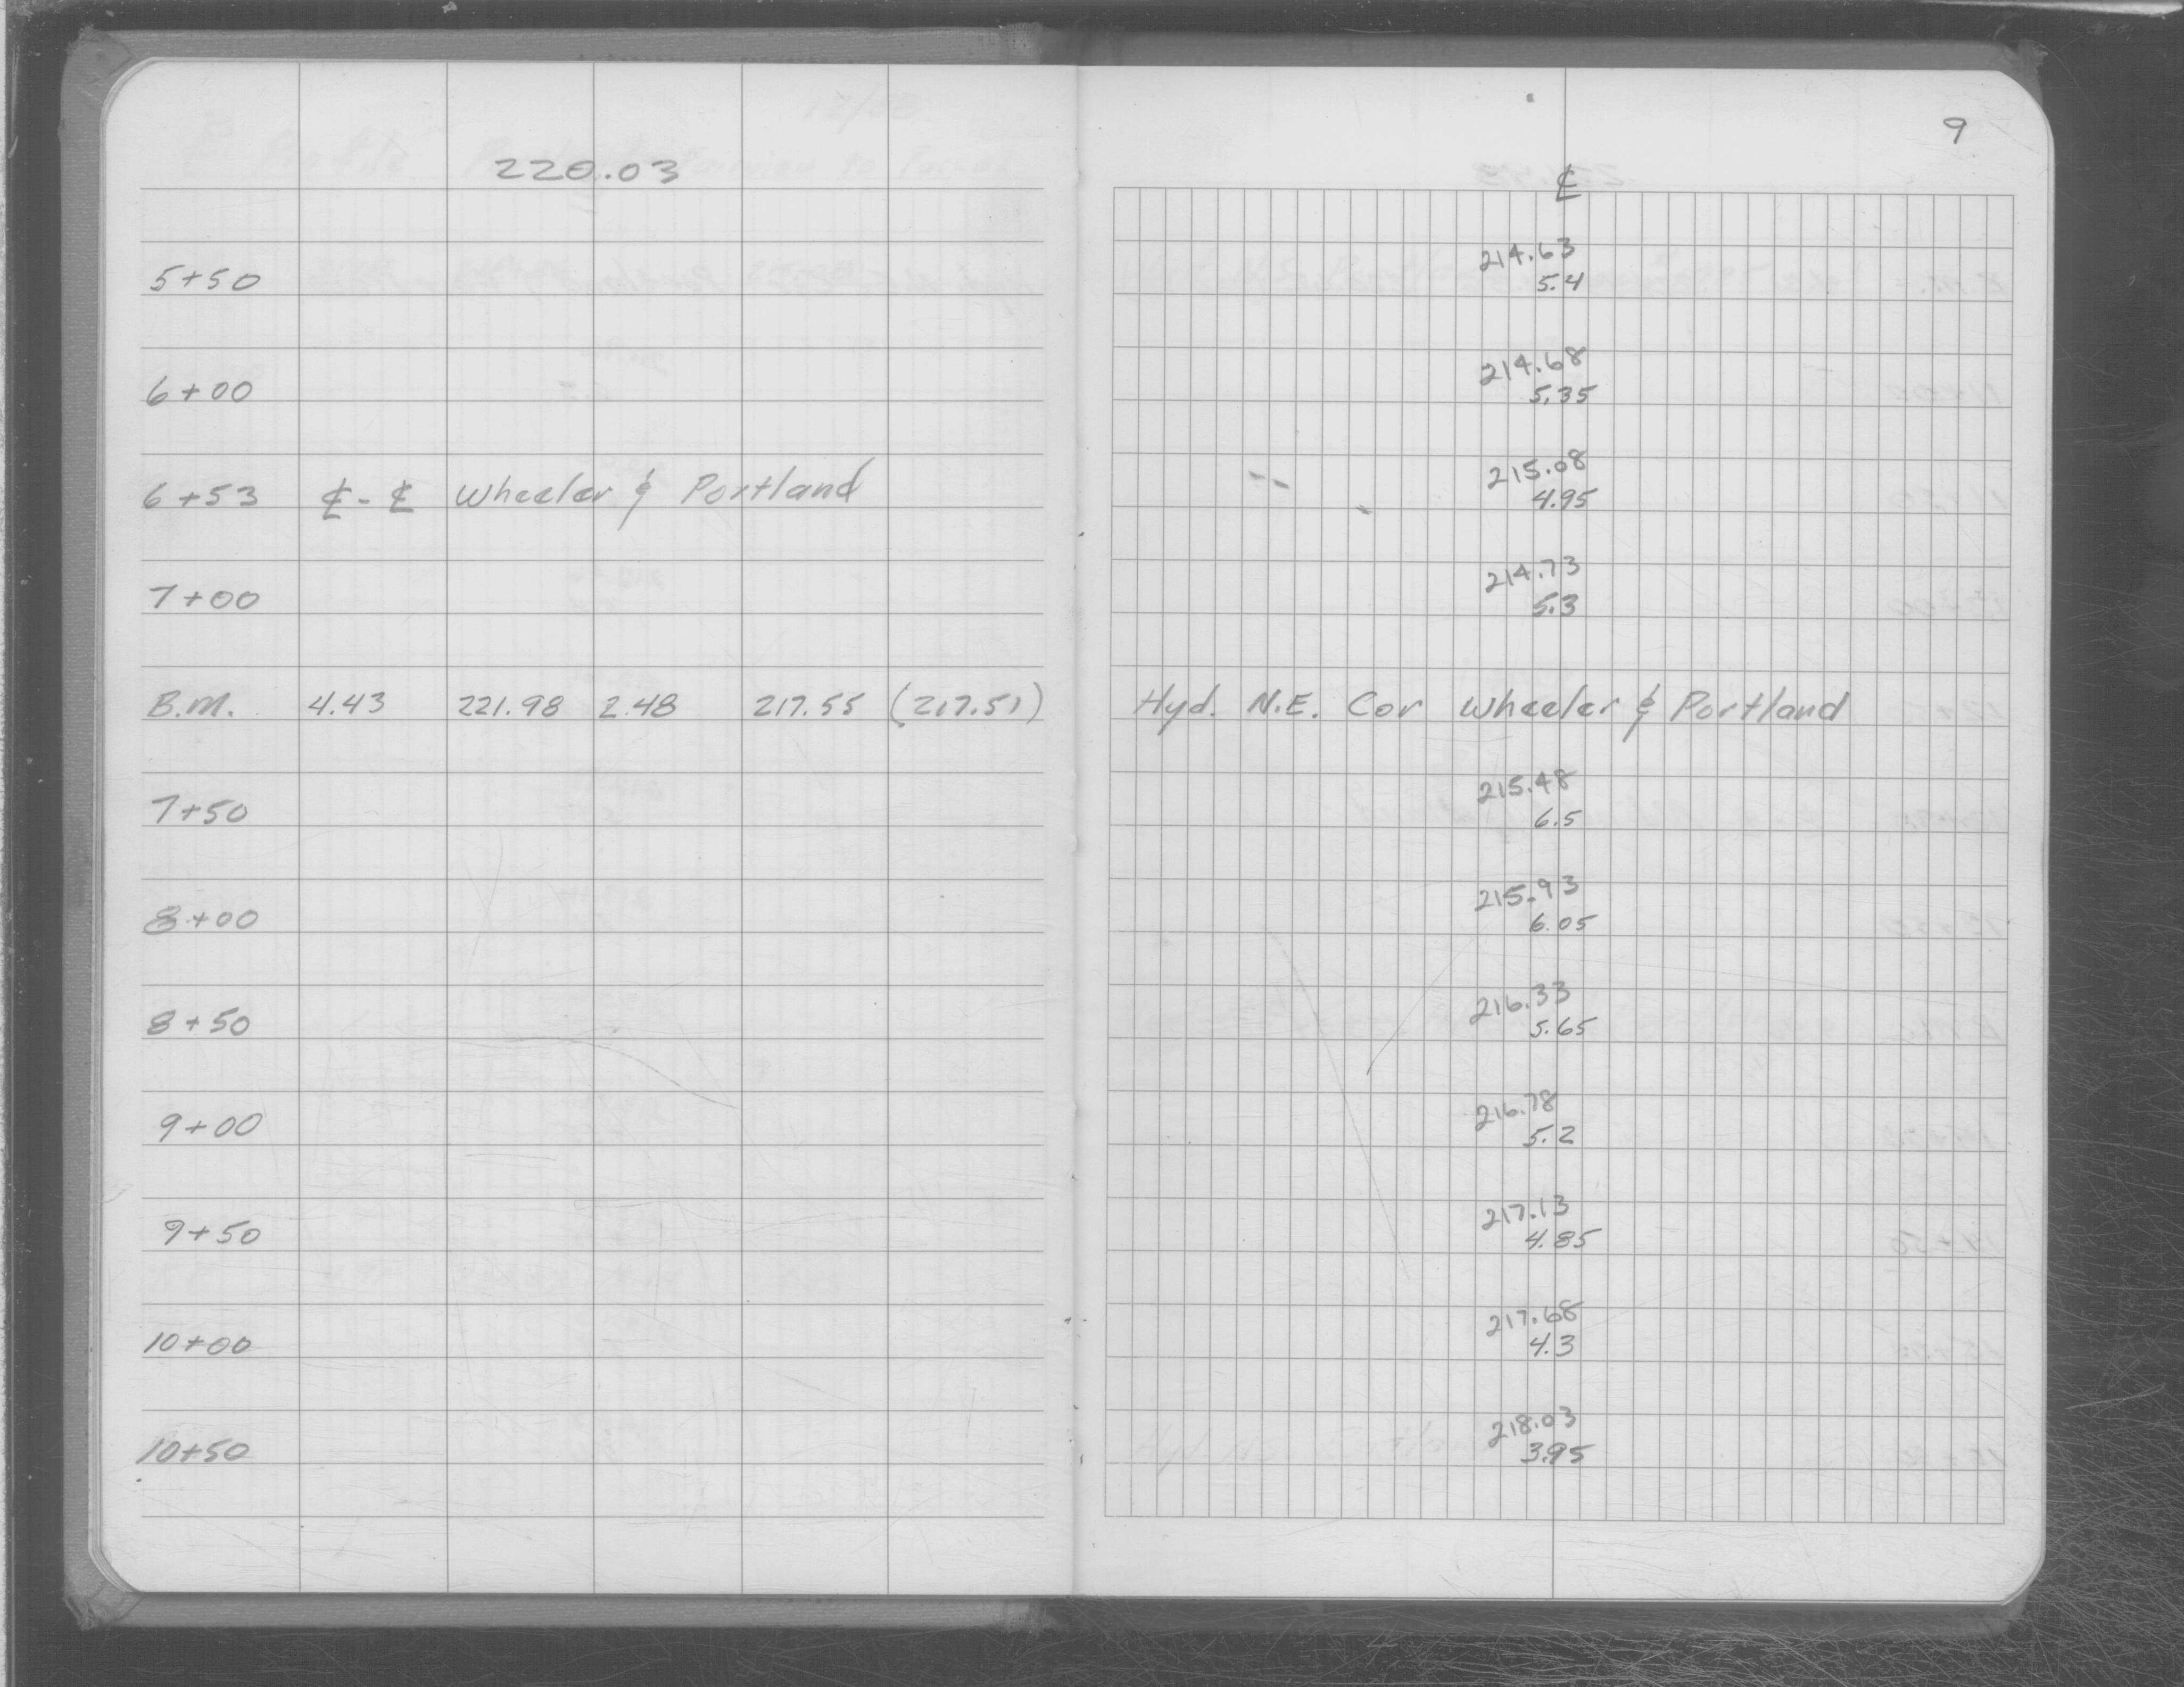 9
220.03 ℄
214.63
5+50 5.4
214.68
6+00 5.35
215.08
6+53 ℄ - ℄ Wheeler & Portland 4.95
214.73
7+00 5.3
B.M. 4.43 221.98 2.48 217.55 (217.51) Hyd. N.E. Cor Wheeler & Portland
215.48
7+50 6.5
215.93
8+00 6.05
216.33
8+50 5.65
216.78
9+00 5.2
217.13
9+50 4.85
217.68
10+00 4.3
218.03
10+50 3.95